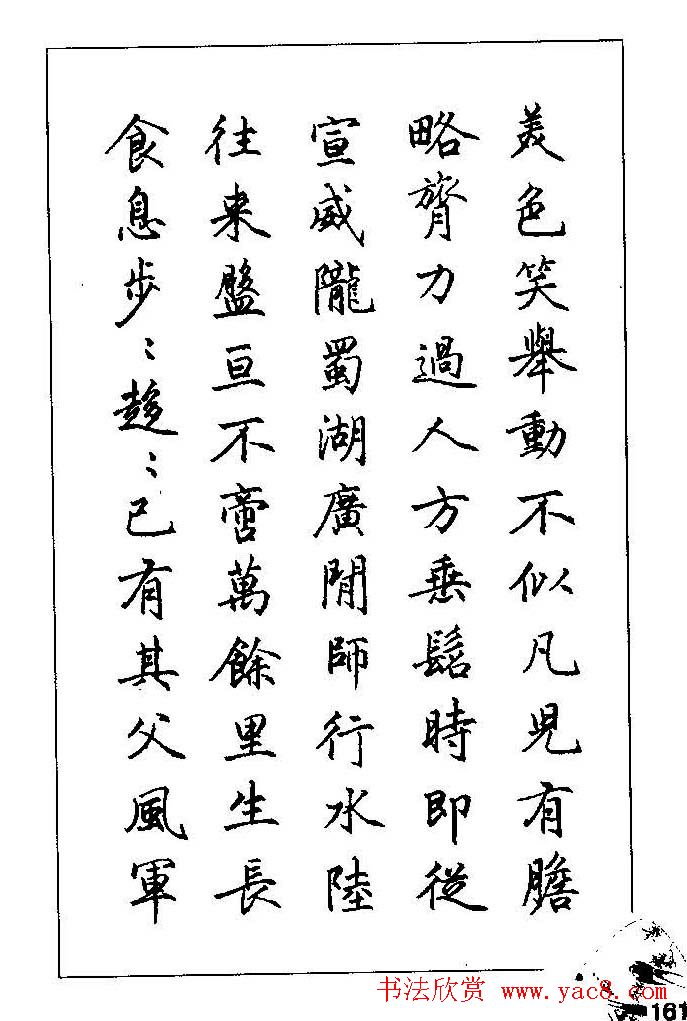 美色笑舉動不似凡児有膽
略膂力過人方垂髫時即從
宣威隴蜀湖廣間師行水陸
往来盤亘不啻萬餘里生長
食息步〻趨〻已有其父風軍
书法欣赏 www.yac8.com
161